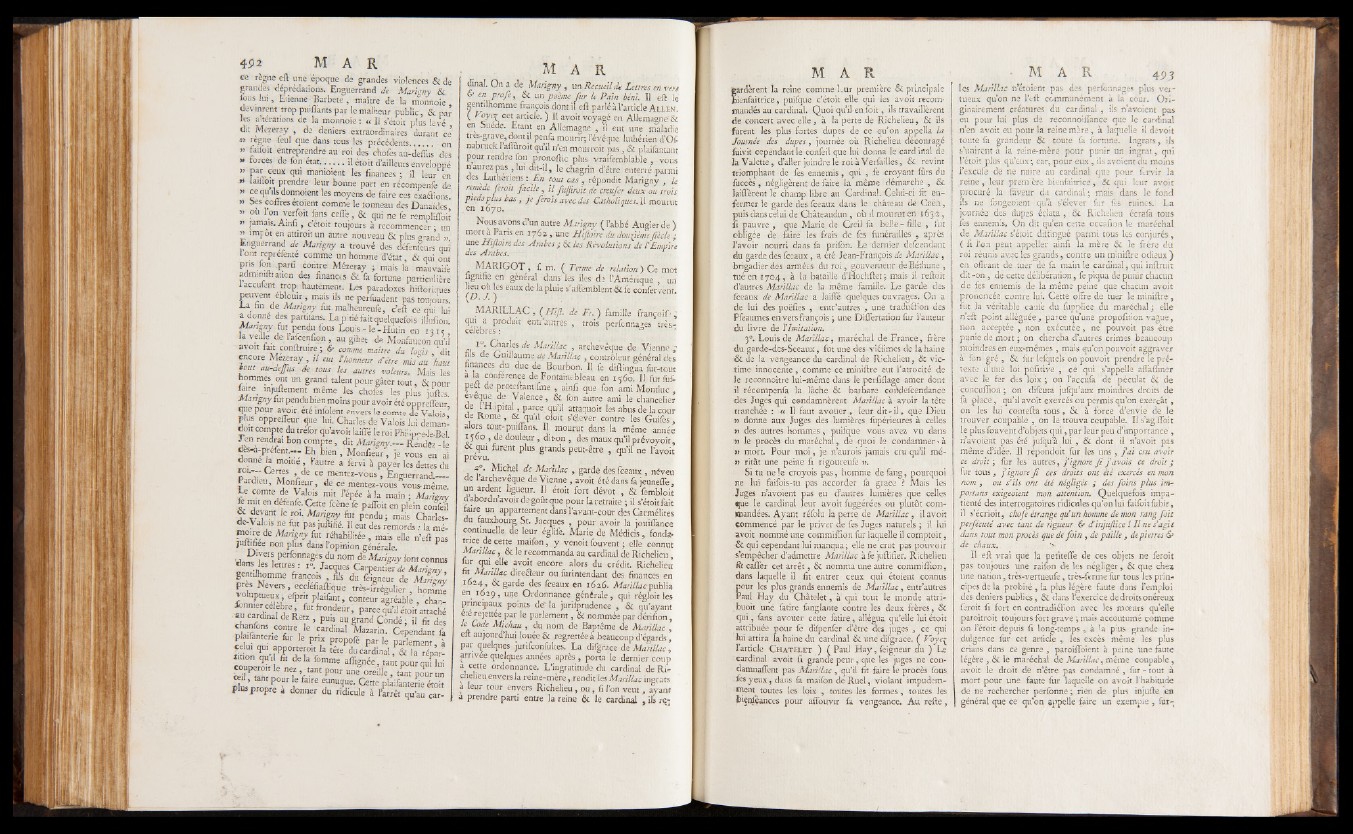 492 M A R
ce règne eſt une époque de grandes violences & de
grandes déprédations. Enguerrand de Marigny &
ſous lui, Etienne Barbete, maître de la monnoie,
devinrent trop puiſſants par le malheur public, & par
les altérations de la monnoie : « Il s'étoit plus levé,
dit Mezeray, de deniers extraordinaires durant ce
» règne ſeul que dans tous les précédents...... on
» faiſoit entreprendre au roi des choſes au-deſſus des
» forces de ſon état...... il étoit d'ailleurs enveloppé
» par ceux qui manioient les finances ; il leur en
» laiſſoit prendre leur bonne part en récompenſe de
» ce qu'ils donnoient les moyens de faire ces exactions.
» Ses coffres étoient comme le tonneau des Danaïdes,
» où l'on verſoit ſans ceſſe, & qui ne ſe rempliſſoit
» jamais. Ainſi, c'étoit toujours à recommencer ; un
» impôt en attiroit un autre nouveau & plus grand ».
Enguerrand de Marigny a trouvé des défenſeurs qui
l'ont repréſenté comme un homme d'état, & qui ont
pris ſon parti contre Mézeray ; mais la mauvaiſe
adminiſtration des finances & ſa fortune particulière
l'accuſent trop hautement. Les paradoxes hiſtoriques
peuvent éblouir, mais ils ne perſuadent pas toujours.
La fin de Marigny fut malheureuſe, c'eſt ce qui lui
a donné des partiſans. La pitié fait quelquefois illuſion.
Marigny fut pendu ſous Louis-le-Hutin en 1315,
la veille de l'aſcenſion, au gibet de Montfaucon qu'il
avoit fait conſtruire ; & comme maître du logis, dit
encore Mézeray, il eut l'honneur d'être mis au haut
bout au-deſſus de tous les autres voleurs. Mais les
hommes ont un grand talent pour gâter tout, & pour
faire injuſtement même les choſes les plus juſtes.
Marigny fut pendu bien moins pour avoir été oppreſſeur,
que pour avoir été inſolent envers le comte de Valois,
plus oppreſſeur que lui. Charles de Valois lui deman-
doit compte du tréſor qu'avoit laiſſé le roi Philippe-le-Bel.
J'en rendrai bon compte, dit Marigny.—— Rendés-le
dès-à-préſent.—— Eh bien, Monſieur, je vous en ai
donné la moitié, l'autre a ſervi à payer les dettes du
roi.—— Certes, de ce mentez-vous, Enguerrand.——
Pardieu, Monſieur, de ce mentez-vous vous-même.
Le comte de Valois mit l'épée à la main ; Marigny
ſe mit en défenſe. Cette ſcène ſe paſſoit en plein conſeil
& devant le roi. Marigny fut pendu ; mais Charles-
de-Valois ne fut pas juſtifié. Il eut des remords : la mé-
moire de Marigny fut réhabilitée, mais elle n'eſt pas
juſtifiée non plus dans l'opinion générale.
Divers perſonnages du nom de Marigny ſont connus
dans les lettres : 1°. Jacques Carpentier de Marigny,
gentilhomme françois, fils du ſeigneur de Marigny
près Nevers, eccléſiaſtique très-irrégulier, homme
voluptueux, eſprit plaiſant, conteur agréable, chan-
ſonnier célèbre, fut frondeur, parce qu'il étoit attaché
au cardinal de Retz, puis au grand Condé ; il fit des
chanſons contre le cardinal Mazarin. Cependant ſa
plaiſanterie ſur le prix propoſé par le parlement, à
celui qui apporteroit la tête du cardinal, & la répar-
tition qu'il fit de la ſomme aſſignée, tant pour qui lui
couperoit le nez, tant pour une oreille, tant pour un
œil, tant pour le faire eunuque. Cette plaiſanterie étoit
plus propre à donner du ridicule à l'arrêt qu'au car-
M A R
dinal. On a de Marigny, un Recueil de Lettres en vers
& en proſe, & un poëme ſur le Pain béni. Il eſt le
gentilhomme françois dont il eſt parlé à l'article ALLEN.
( Voyez cet article. ) Il avoit voyagé en Allemagne &
en Suède. Etant en Allemagne, il eut une maladie
très-grave, dont il penſa mourir; l'évêque luthérien d'Oſ-
nabruck l'aſſuroit qu'il n'en mourroit pas, & plaiſantant
pour rendre ſon pronoſtic plus vraiſemblable, vous
n'aurez pas, lui dit-il, le chagrin d'être enterré parmi
des Luthériens : En tout cas, répondit Marigny, le
remède ſeroit facile, il ſuffiroit de creuſer deux ou trois
pieds plus bas, je ſerois avec des Catholiques. Il mourut
en 1670.
Nous avons d'un autre Marigny ( l'abbé Augier de )
mort à Paris en 1762, une Hiſtoire du douzieme ſiècle ;
une Hiſtoire des Arabes ; & les Révolutions de l'Empire
des Arabes.
MARIGOT, ſ. m. ( Terme de relation ) Ce mot
ſignifie en général dans les îles de l'Amérique, un
lieu où les eaux de la pluie s'aſſemblent & ſe conſervent.
(D. J. )
MARILLAC, ( Hiſt. de Fr. ) famille françoiſe,
qui a produit entr'autres, trois perſonnages très-
célèbres :
1°. Charles de Marillac, archevêque de Vienne ;
fils de Guillaume de Marillac, contrôleur général des
finances du duc de Bourbon. Il ſe diſtingua ſur-tout
à la conférence de Fontainebleau en 1560. Il fut ſuſ-
pect de proteſtantiſme, ainſi que ſon ami Montluc,
évêque de Valence, & ſon autre ami le chancelier
de l'Hôpital, parce qu'il attaquoit les abus de la cour
de Rome, & qu'il oſoit s'élever contre les Guiſes,
alors tout-puiſſans. Il mourut dans la même année
1560, de douleur, dit-on, des maux qu'il prévoyoit,
& qui furent plus grands peut-être, qu'il ne l'avoit
prévu.
2°. Michel de Marillac, garde des ſceaux, neveu
de l'archevêque de Vienne, avoit été dans ſa jeuneſſe,
un ardent ligueur. Il étoit fort dévot, & ſembloit
d'abord n'avoir de goût que pour la retraite ; il s'étoit fait
faire un appartement dans l'avant-cour des Carmélites
du fauxbourg St. Jacques, pour avoir la jouiſſance
continuelle de leur égliſe. Marie de Médicis, fonda-
trice de cette maiſon, y venoit ſouvent ; elle connut
Marillac, & le recommanda au cardinal de Richelieu,
ſur qui elle avoit encore alors du crédit. Richelieu
fit Marillac directeur ou ſurintendant des finances en
1624, & garde des ſceaux en 1626. Marillac publia
en 1629, une Ordonnance générale, qui régloit les
principaux points de la juriſprudence, & qu'ayant
été rejettée par le parlement, & nommée par dériſion,
le Code Michau, du nom de Baptême de Marillac,
eſt aujourd'hui louée & regrettée à beaucoup d'égards,
par quelques juriſconſultes. La diſgrace de Marillac,
arrivée quelques années après, porta le dernier coup
à cette ordonnance. L'ingratitude du cardinal de Ri-
chelieu envers la reine-mère, rendit les Marillac ingrats
à leur tour envers Richelieu, ou, ſi l'on veut, ayant
à prendre parti entre la reine & le cardinal, ils re-
M A R
gardèrent la reine comme leur première & principale
bienfaitrice, puiſque c'étoit elle qui les avoit recom-
mandés au cardinal. Quoi qu'il en ſoit, ils travaillèrent
de concert avec elle, à la perte de Richelieu, & ils
furent les plus fortes dupes de ce qu'on appella la
Journée des dupes, journée où Richelieu découragé
ſuivit cependant le conſeil que lui donna le cardinal de
la Valette, d'aller joindre le roi à Verſailles, & revint
triomphant de ſes ennemis, qui, ſe croyant ſûrs du
ſuccès, négligèrent de faire la même démarche, &
laiſſèrent le champ libre au Cardinal. Celui-ci fit en-
fermer le garde des ſceaux dans le château de Caën,
puis dans celui de Châteaudun, où il mourut en 1632,
ſi pauvre, que Marie de Creil ſa belle-fille, fut
obligée de faire les frais de ſes funérailles, après
l'avoir nourri dans ſa priſon. Le dernier deſcendant
du garde des ſceaux, a été Jean-François de Marillac,
brigadier des armées du roi, gouverneur de Béthune,
tué en 1704, à la bataille d'Hochſtet ; mais il reſtoit
d'autres Marillac de la même famille. Le garde des
ſceaux de Marillac a laiſſé quelques ouvrages. On a
de lui des poéſies, entr'autres, une traduction des
Pſeaumes en vers françois ; une Diſſertation ſur l'auteur
du livre de l'Imitation.
3°. Louis de Marillac, maréchal de France, frère
du garde-des-Sceaux, fut une des victimes de la haine
& de la vengeance du cardinal de Richelieu, & vic-
time innocente, comme ce miniſtre eut l'atrocité de
le reconnoître lui-même dans le perſiflage amer dont
il récompenſa la lâche & barbare condeſcendance
des Juges qui condamnèrent Marillac à avoir la tête
tranchée : « Il faut avouer, leur dit-il, que Dieu
» donne aux Juges des lumières ſupérieures à celles
» des autres hommes, puiſque vous avez vu dans
» le procès du maréchal, de quoi le condamner à
» mort. Pour moi, je n'aurois jamais cru qu'il mé-
» ritât une peine ſi rigoureuſe ».
Si tu ne le croyois pas, homme de ſang, pourquoi
ne lui faiſois-tu pas accorder ſa grace ? Mais les
Juges n'avoient pas eu d'autres lumières que celles
que le cardinal leur avoit ſuggérées ou plutôt com-
mandées. Ayant réſolu la perte de Marillac, il avoit
commencé par le priver de ſes Juges naturels ; il lui
avoit nommé une commiſſion ſur laquelle il comptoit,
& qui cependant lui manqua ; elle ne crut pas pouvoir
s'empêcher d'admettre Marillac à ſe juſtifier. Richelieu
fit caſſer cet arrêt, & nomma une autre commiſſion,
dans laquelle il fit entrer ceux qui étoient connus
pour les plus grands ennemis de Marillac, entr'autres
Paul Hay du Châtelet, à qui tout le monde attri-
buoit une ſatire ſanglante contre les deux frères, &
qui, ſans avouer cette ſatire, allégua qu'elle lui étoit
attribuée pour ſe diſpenſer d'être des juges, ce qui
lui attira la haine du cardinal & une diſgrace. ( Voyez
l'article CHATELET ) ( Paul Hay, ſeigneur du ) Le
cardinal avoit ſi grande peur, que les juges ne con-
damnaſſent pas Marillac, qu'il fit faire le procès ſous
ſes yeux, dans ſa maiſon de Ruel, violant impudem-
ment toutes les loix, toutes les formes, toutes les
bienſéances pour aſſouvir ſa vengeance. Au reſte,
M A R 493
les Marillac n'étoient pas des perſonnages plus ver-
tueux qu'on ne l'eſt communément à la cour. Ori-
ginairement créatures du cardinal, ils n'avoient pas
eu pour lui plus de reconnoiſſance que le cardinal
n'en avoit eu pour la reine mère, à laquelle il devoit
toute ſa grandeur & toute ſa fortune. Ingrats, ils
s'unirent à la reine-mère pour punir un ingrat, qui
l'étoit plus qu'eux ; car, pour eux, ils avoient du moins
l'excuſe de ne nuire au cardinal que pour ſervir la
reine, leur première bienfaitrice, & qui leur avoit
procuré la faveur du cardinal ; mais dans le fond
ils ne ſongeoient qu'à s'élever ſur ſes ruines. La
journée des dupes éclata, & Richelieu écraſa tous
ſes ennemis. On dit qu'en cette occaſion le maréchal
de Marillac s'étoit diſtingué parmi tous les conjurés,
( ſi l'on peut appeller ainſi la mère & le frère du
roi réunis avec les grands, contre un miniſtre odieux )
en offrant de tuer de ſa main le cardinal, qui inſtruit
dit-on, de cette délibération, ſe piqua de punir chacun
de ſes ennemis de la même peine que chacun avoit
prononcée contre lui. Cette offre de tuer le miniſtre,
fut la véritable cauſe du ſupplice du maréchal ; elle
n'eſt point alléguée, parce qu'une propoſition vague,
non acceptée, non exécutée, ne pouvoit pas être
punie de mort ; on chercha d'autres crimes beaucoup
moindres en eux-mêmes, mais qu'on pouvoit aggraver
à ſon gré, & ſur leſquels on pouvoit prendre le pré-
texte d'une loi poſitive, ce qui s'appelle aſſaſſiner
avec le fer des loix ; on l'accuſa de péculat & de
concuſſion ; on diſcuta juſqu'aux moindres droits de
ſa place, qu'il avoit exercés ou permis qu'on exerçât,
on les lui conteſta tous, & à force d'envie de le
trouver coupable, on le trouva coupable. Il s'agiſſoit
le plus ſouvent d'objets qui, par leur peu d'importance,
n'avoient pas été juſqu'à lui, & dont il n'avoit pas
même d'idée. Il répondoit ſur les uns, J'ai cru avoir
ce droit ; ſur les autres, j'ignore ſi j'avois ce droit ;
ſur tous, j'ignore ſi ces droits ont été exercés en mon
nom, ou s'ils ont été négligés ; des ſoins plus im-
portans exigeoient mon attention. Quelquefois impa-
tienté des interrogatoires ridicules qu'on lui faiſoit ſubir,
il s'écrioit, choſe étrange qu'un homme de mon rang ſoit
perſécuté avec tant de rigueur & d'injuſtice ! Il ne s'agit
dans tout mon procès que de foin, de paille, de pierres &
de chaux.
Il eſt vrai que la petiteſſe de ces objets ne ſeroit
pas toujours une raiſon de les négliger, & que chez
une nation, très-vertueuſe, très-ferme ſur tous ſes prin-
cipes de la probité, la plus légère faute dans l'emploi
des deniers publics, & dans l'exercice de droits onéreux
ſeroit ſi fort en contradiction avec les mœurs qu'elle
paroîtroit toujours fort grave, mais accoutumé comme
on l'étoit depuis ſi long-temps, à la plus grande in-
dulgence ſur cet article, les excès même les plus
crians dans ce genre, paroiſſoient à peine une faute
légère, & le maréchal de Marillac, même coupable,
avoit le droit de n'être pas condamné, ſur-tout à
mort pour une faute ſur laquelle on avoit l'habitude
de ne rechercher perſonne ; rien de plus injuſte en
général que ce qu'on appelle faire un exemple, ſur-